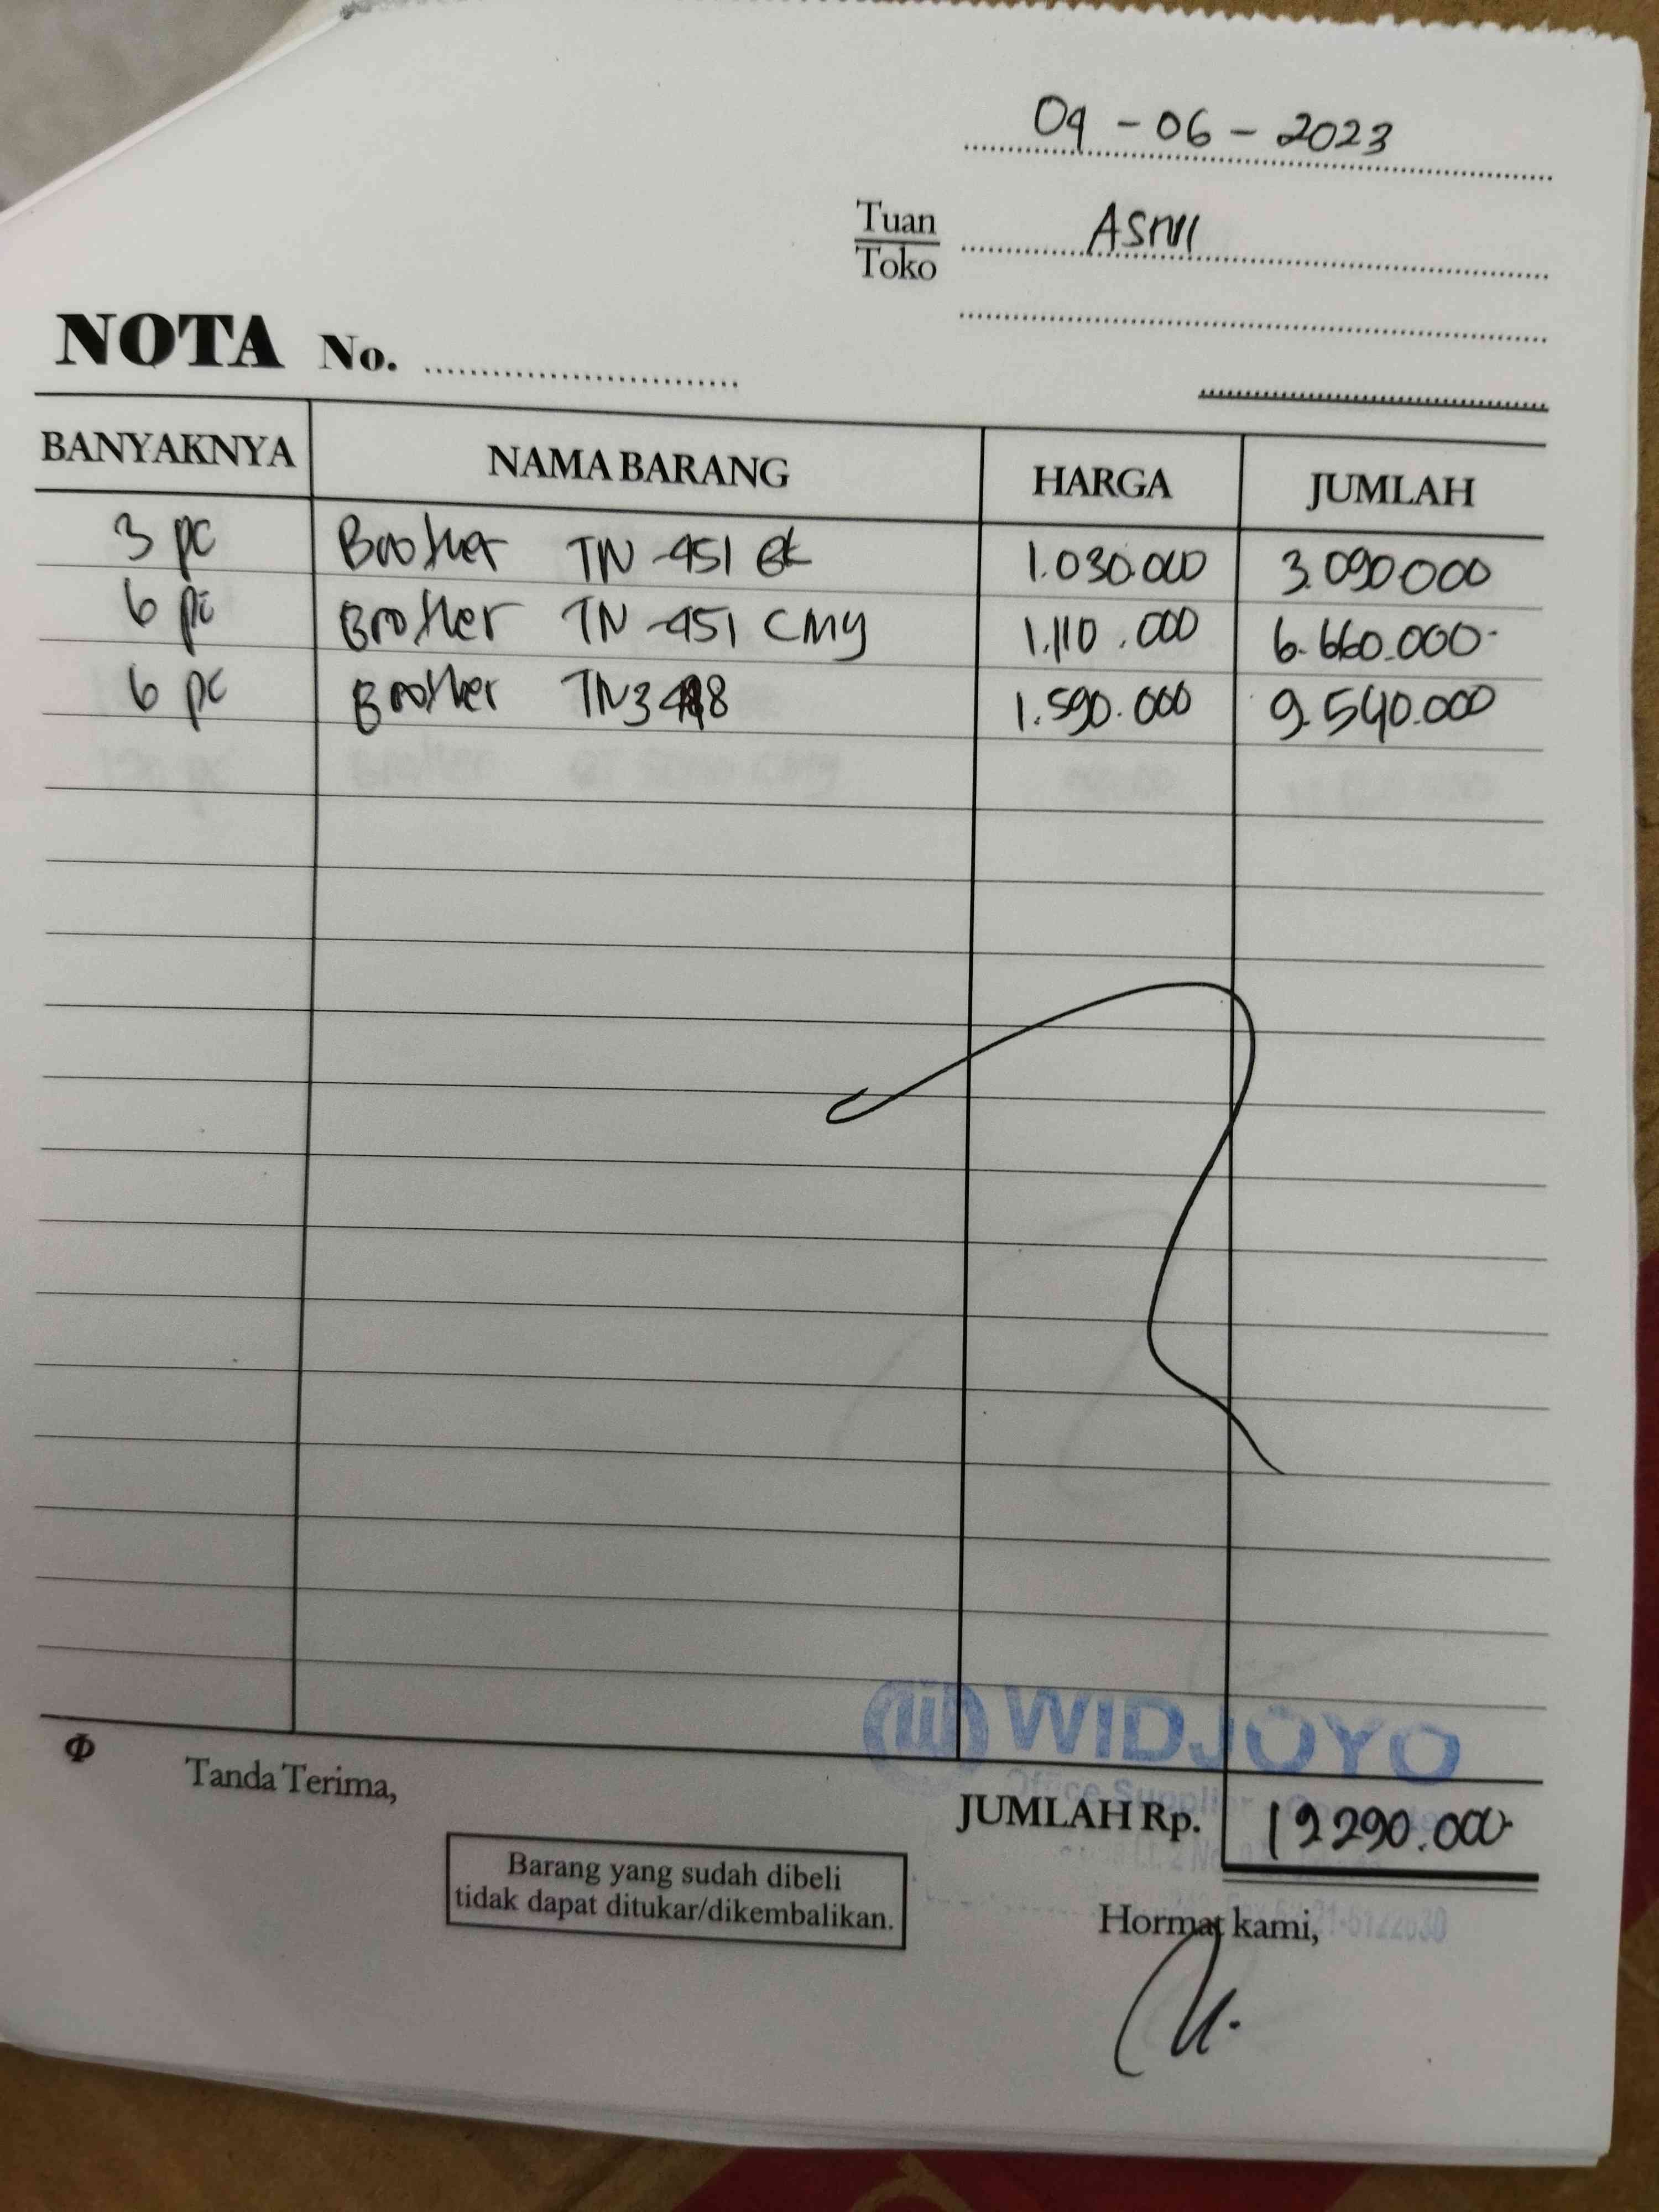 09-06-2023
Tuan
Toko
NOTA No.
BANYAKNYA NAMA BARANG HARGA JUMLAH
3 pc Brother TN-451 BK 1.030.000 3.090000
6 pc Brother TN-451 CMY 1.110.000 6.660.000-
6 pc Brother 1.590.000 9.540.000
WIDJOYO
Office Supplier
Φ Tanda Terima,
JUMLAH Rp. 19290.000-
Barang yang sudah dibeli
tidak dapat ditukar/dikembalikan.
Hormat kami,